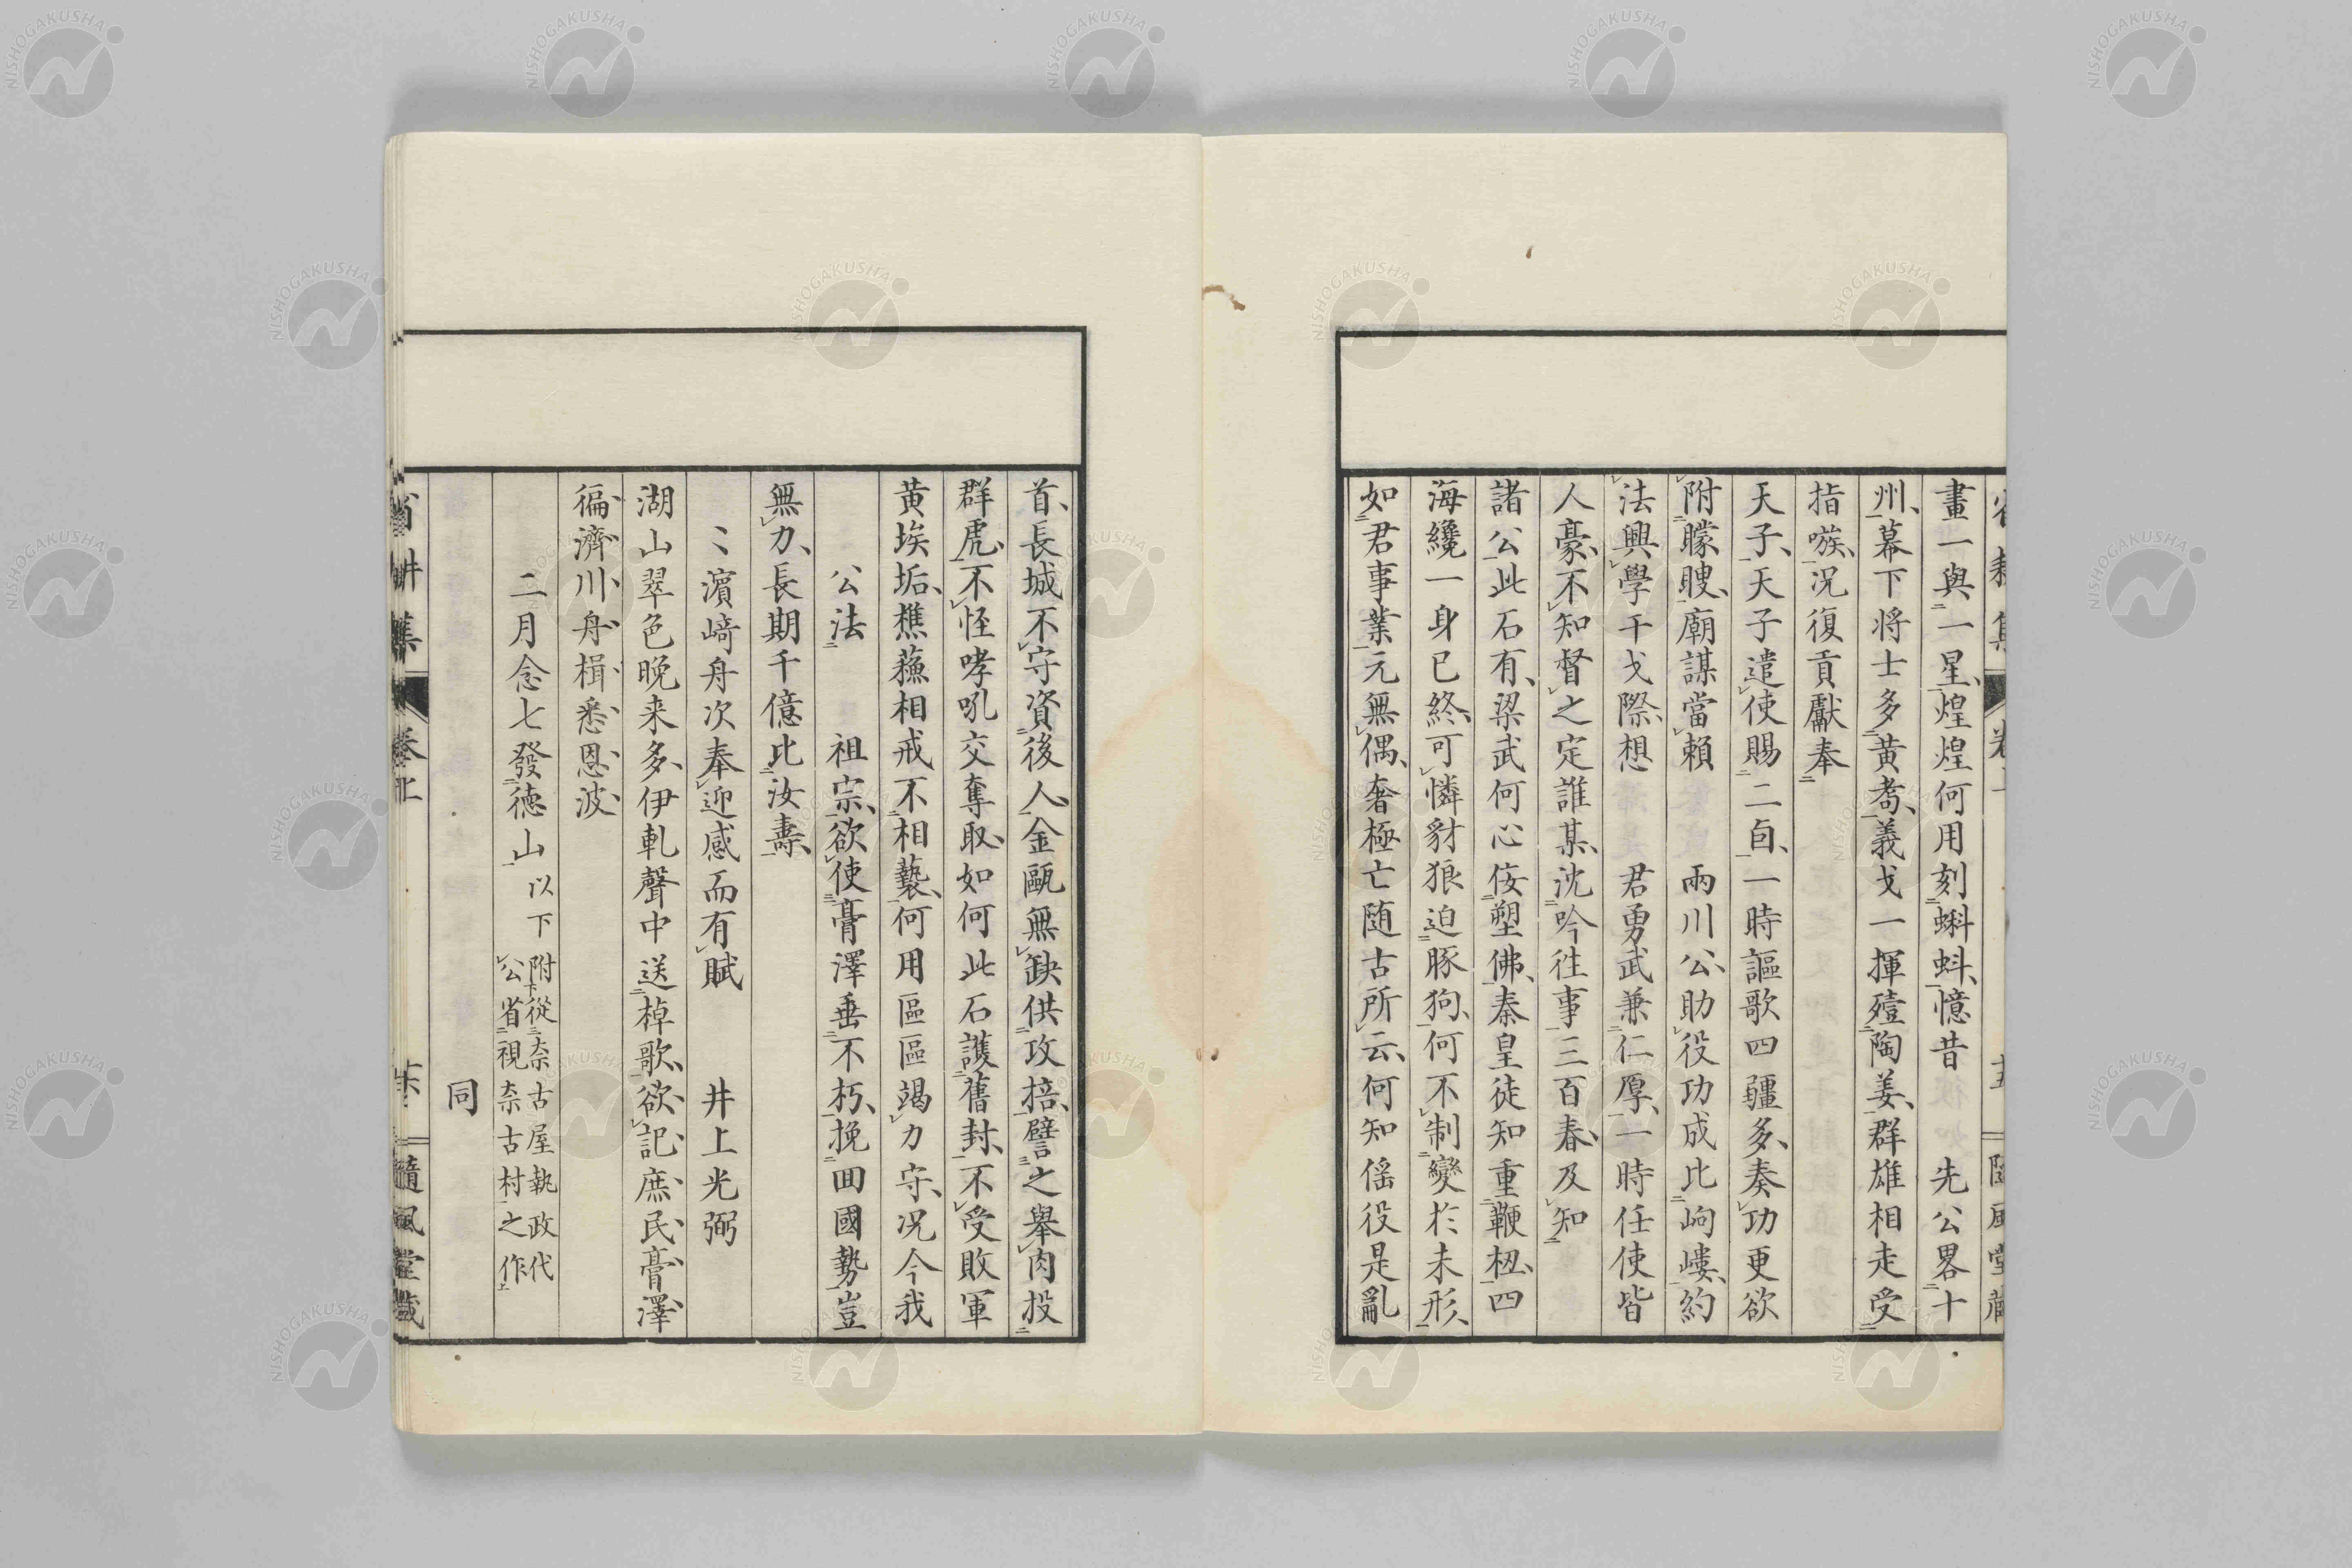 畫一與一星煌煌何用刻蝌蚪憶昔　先公畧十
州幕下将士多黄耇義戈一揮殪陶姜群雄相走受
指嗾况復貢獻奉
天子天子遣使賜二卣一時謳歌四疆多奏功更欲
附矇瞍廟謀當頼　兩川公助役功成比岣嶁約
法興學干戈際想　君勇武兼仁厚一時任使皆
人豪不知督之定誰某沈吟往事三百春及知
諸公此石有梁武何心侫塑佛秦皇徒知重鞭杻四
海纔一身已終可憐豺狼迫豚狗何不制變於未形
如君事業元無偶奢極亡随古所云何知傜役是亂
首長城不守資後人金甌無缺供攻掊譬之舉肉投
群虎不怪哮吼交奪取如何此石護舊封不受敗軍
黄埃垢樵蘓相戒不相褻何用區區竭力守况今我
公法　祖宗欲使膏澤垂不朽挽囬國勢豈
無力長期千億比汝壽
〻濵﨑舟次奉迎感而有賦　井上光弼
湖山翠色晩来多伊軋聲中送棹歌欲記庶民膏澤
徧濟川舟楫悉恩波
二月念七發徳山以下附從奈古屋執政代公省視奈古村之作
同
省耕集　卷上　隨風堂藏
NISHOGAKUSHA